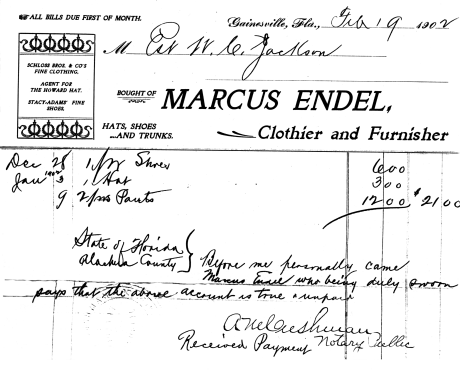 ALL BILLS DUE FIRST OF MONTH.
Gainesville, Fla., Feb 19 1902
M Est W. C. Jackson
SCHLOSS BROS. & CO'S
FINE CLOTHING.
AGENT FOR
THE HOWARD HAT.
STACY-ADAMS' FINE
SHOES.
BOUGHT OF
MARCUS ENDEL,
HATS, SHOES
...AND TRUNKS.
Clothier and Furnisher
Dec 28 1 pr Shoes 6 00
Jan 1902 3 1 Hat 3 00
9 2 prs Pants 12 00 $21 00
State of Florida
Alachua County } Before me personally came
Marcus Endel who being duly sworn
says that the above account is true & unpaid
Notary Public
Received Payment